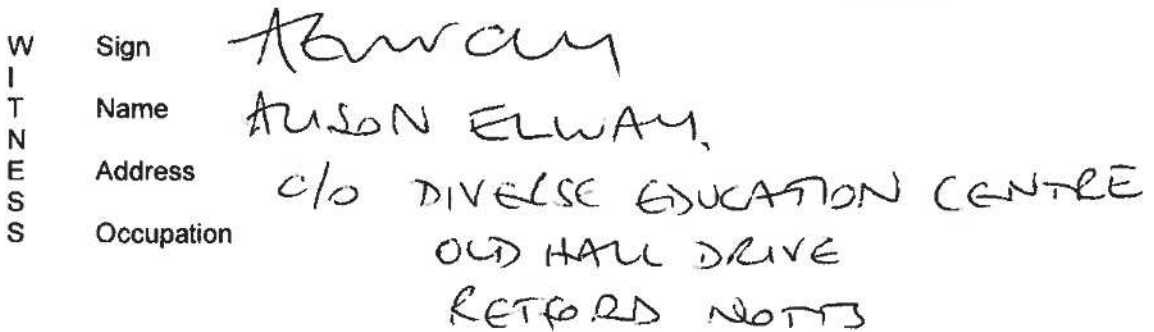 WITNESS
Sign
Name ALISON ELWAY.
Address c/o DIVERSE EDUCATION CENTRE
Occupation OLD HALL DRIVE
RETFORD NOTTS